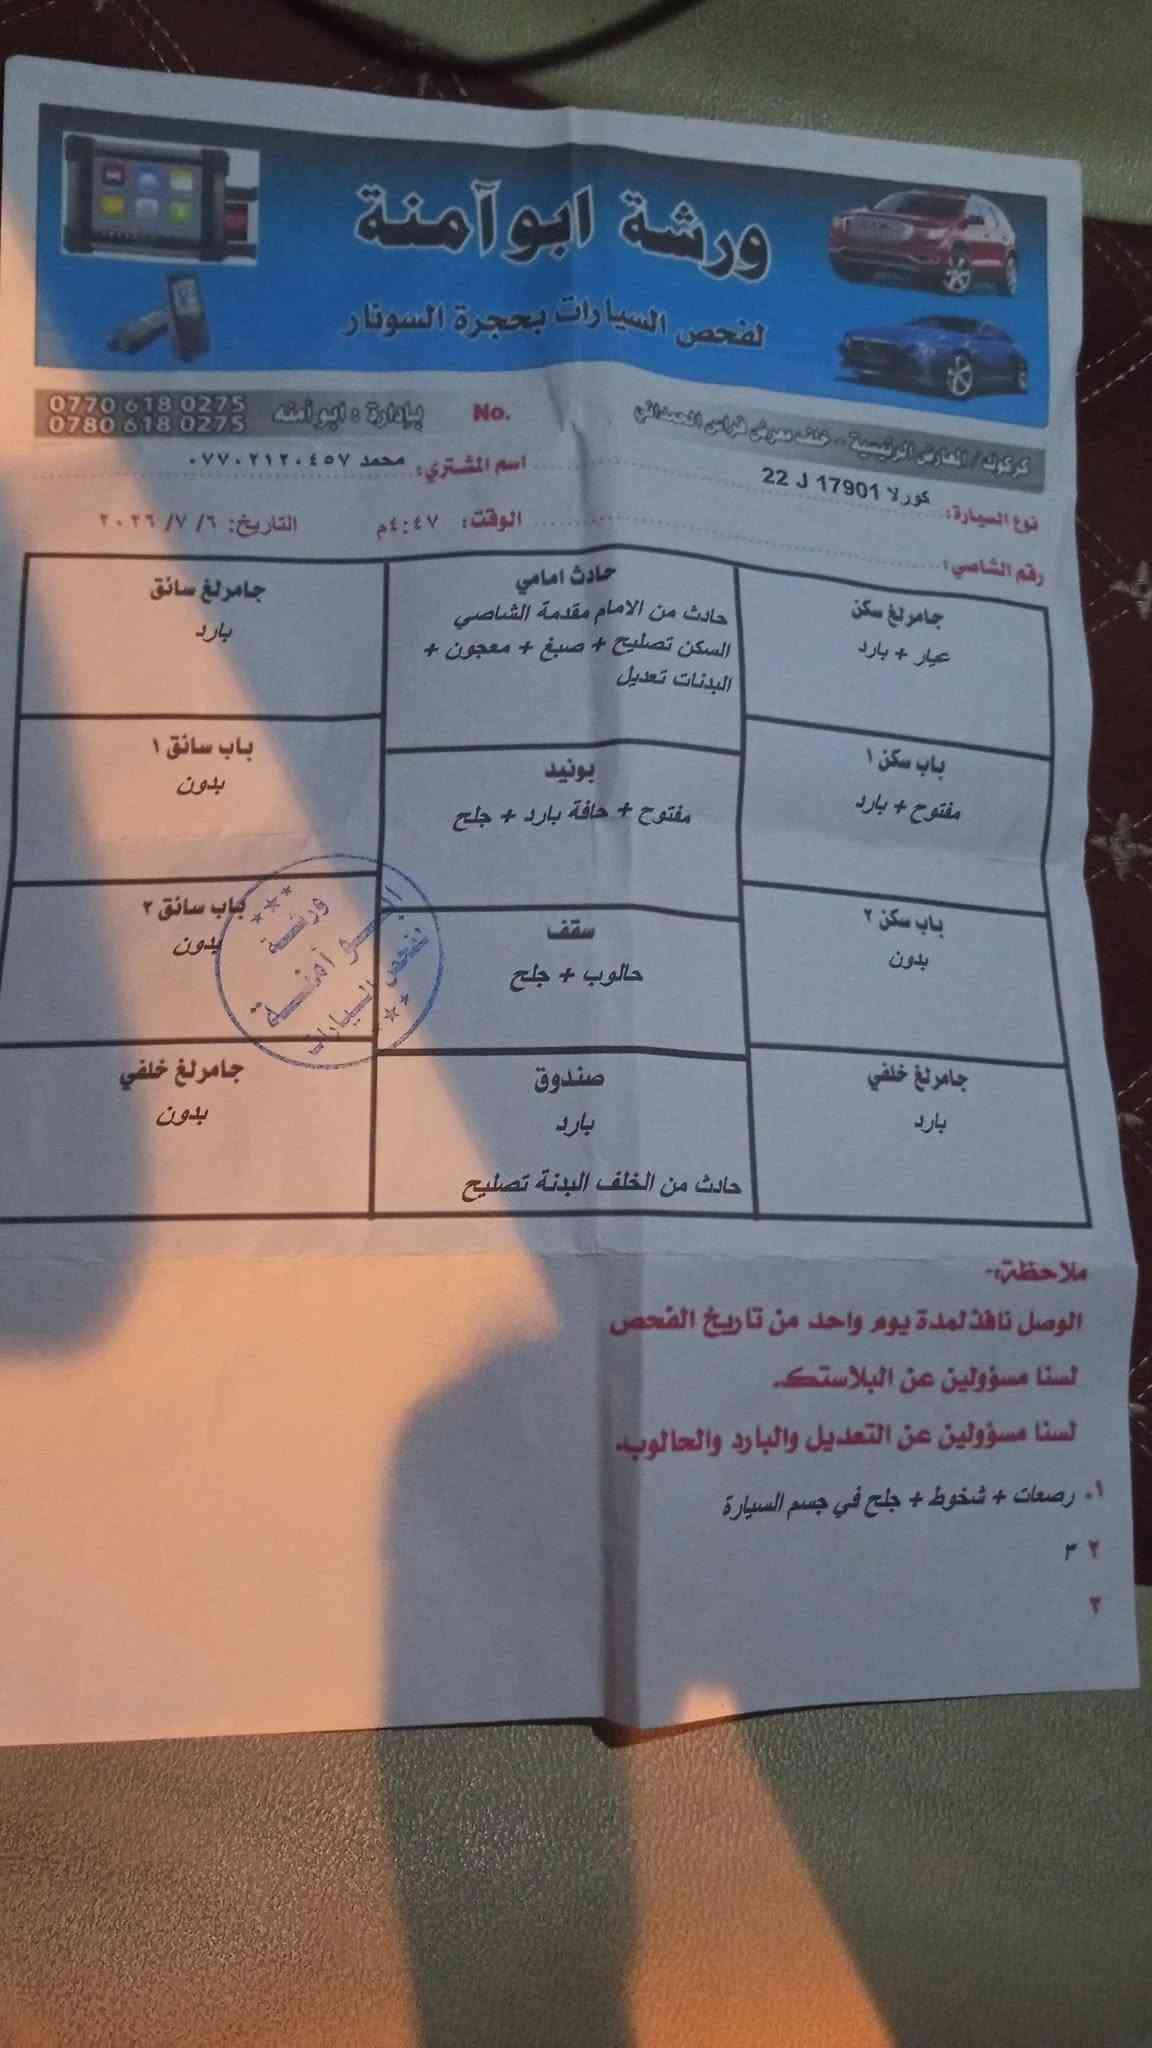 ورشة ابو آمنة
لفحص السيارات بحجرة السونار
كركوك / المعارض الرئيسية - خلف معرض فراس الحمداني
No.
بإدارة : ابو آمنه
0770 618 0275
0780 618 0275
نوع السيارة: كورلا 17901 J 22
اسم المشتري: محمد ٠٧٧٠٢١٢٠٤٥٧
رقم الشاصي:
الوقت: ٤:٤٧م
التاريخ: ٦/ ٧/ ٢٠٢٦
جامرلغ سكن
عيار + بارد
حادث امامي
حادث من الامام مقدمة الشاصي
السكن تصليح + صبغ + معجون +
البدنات تعديل
جامرلغ سائق
بارد
باب سكن ١
مفتوح + بارد
بونيد
مفتوح + حافة بارد + جلح
باب سائق ١
بدون
باب سكن ٢
بدون
سقف
حالوب + جلح
باب سائق ٢
بدون
جامرلغ خلفي
بارد
صندوق
بارد
حادث من الخلف البدنة تصليح
جامرلغ خلفي
بدون
ورشة
ابو آمنة
لفحص السيارات
ملاحظة:-
الوصل نافذ لمدة يوم واحد من تاريخ الفحص
لسنا مسؤولين عن البلاستك.
لسنا مسؤولين عن التعديل والبارد والحالوب.
١. رصعات + شخوط + جلح في جسم السيارة
٢ ٣
٣